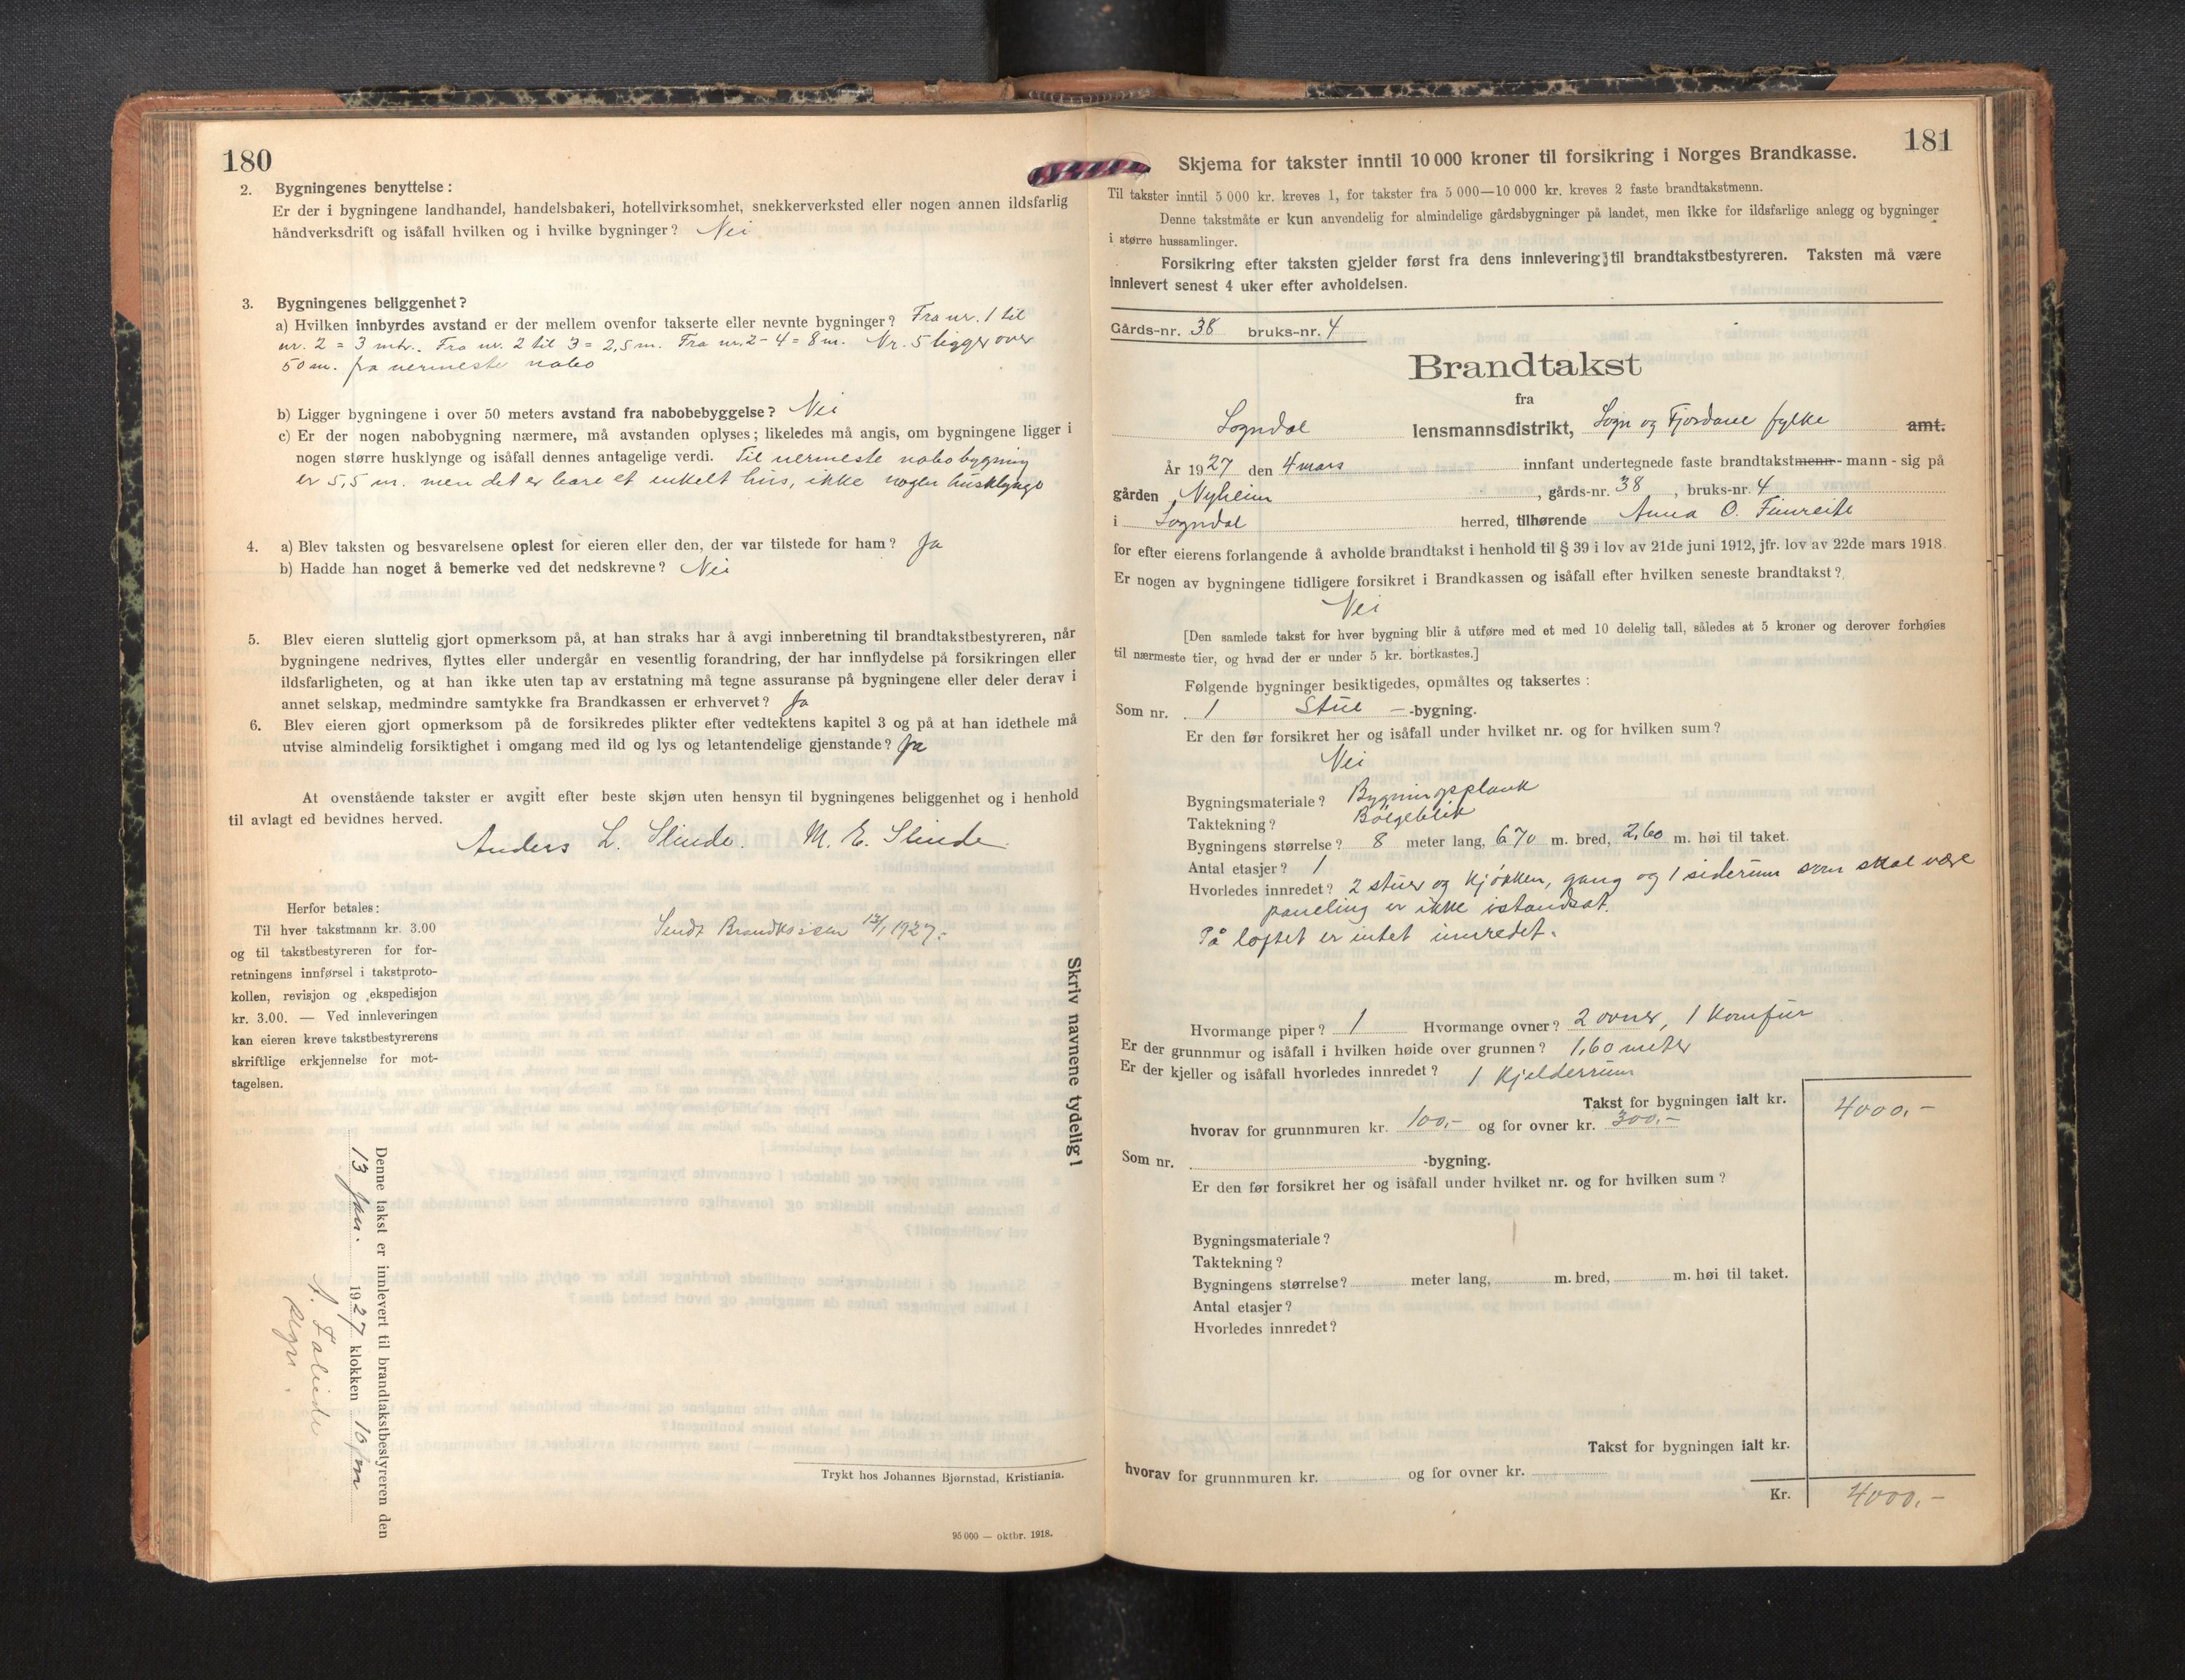 180
2. Bygningenes benyttelse:
Er der i bygningene landhandel, handelsbakeri, hotellvirksomhet, snekkerverksted eller nogen annen ildsfarlig
håndverksdrift og isåfall hvilken og i hvilke bygninger? Nei
3. Bygningenes beliggenhet?
a) Hvilken innbyrdes avstand er der mellem ovenfor takserte eller nevnte bygninger? Fra nr. 1 til
nr. 2 = 3 mtr. Fra nr. 2 til 3 = 2,5 m. Fra nr. 2 - 4 = 8 m. Nr. 5 ligger over
50 m. fra nermeste nabo
b) Ligger bygningene i over 50 meters avstand fra nabobebyggelse? Nei
c) Er der nogen nabobygning nærmere, må avstanden oplyses; likeledes må angis, om bygningene ligger i
nogen større husklynge og isåfall dennes antagelige verdi. Til nermeste nabobygning
er 5,5 m. men det er bare et enkelt hus, ikke nogen husklynge
4. a) Blev taksten og besvarelsene oplest for eieren eller den, der var tilstede for ham? Ja
b) Hadde han noget å bemerke ved det nedskrevne? Nei
5. Blev eieren sluttelig gjort opmerksom på, at han straks har å avgi innberetning til brandtakstbestyreren, når
bygningene nedrives, flyttes eller undergår en vesentlig forandring, der har innflydelse på forsikringen eller
ildsfarligheten, og at han ikke uten tap av erstatning må tegne assuranse på bygningene eller deler derav i
annet selskap, medmindre samtykke fra Brandkassen er erhvervet? Ja
6. Blev eieren gjort opmerksom på de forsikredes plikter efter vedtektens kapitel 3 og på at han idethele må
utvise almindelig forsiktighet i omgang med ild og lys og letantendelige gjenstande? Ja
At ovenstående takster er avgitt efter beste skjøn uten hensyn til bygningenes beliggenhet og i henhold
til avlagt ed bevidnes herved.
Anders L. Slinde. M. E. Slinde
Herfor betales:
Til hver takstmann kr. 3.00
og til takstbestyreren for for-
retningens innførsel i takstproto-
kollen, revisjon og ekspedisjon
kr. 3.00. — Ved innleveringen
kan eieren kreve takstbestyrerens
skriftlige erkjennelse for mot-
tagelsen.
Sendt Brandkassen 13/1 1927.
Skriv navnene tydelig!
Denne takst er innlevert til brandtakstbestyreren den
13 Jan. 1927 klokken 10 fm
Trykt hos Johannes Bjørnstad, Kristiania.
95 000 — oktbr. 1918.
181
Skjema for takster inntil 10 000 kroner til forsikring i Norges Brandkasse.
Til takster inntil 5 000 kr. kreves 1, for takster fra 5 000—10 000 kr. kreves 2 faste brandtakstmenn.
Denne takstmåte er kun anvendelig for almindelige gårdsbygninger på landet, men ikke for ildsfarlige anlegg og bygninger
i større hussamlinger.
Forsikring efter taksten gjelder først fra dens innlevering til brandtakstbestyreren. Taksten må være
innlevert senest 4 uker efter avholdelsen.
Gårds-nr. 38 bruks-nr. 4
Brandtakst
fra
Sogndal lensmannsdistrikt, Sogn og Fjordane fylke amt.
År 1927 den 4 mars innfant undertegnede faste brandtakstmenn - mann - sig på
gården Nyheim, gårds-nr. 38, bruks-nr. 4
i Sogndal herred, tilhørende Anna O. Fimreite
for efter eierens forlangende å avholde brandtakst i henhold til § 39 i lov av 21de juni 1912, jfr. lov av 22de mars 1918.
Er nogen av bygningene tidligere forsikret i Brandkassen og isåfall efter hvilken seneste brandtakst?
Nei
[Den samlede takst for hver bygning blir å utføre med et med 10 delelig tall, således at 5 kroner og derover forhøies
til nærmeste tier, og hvad der er under 5 kr. bortkastes.]
Følgende bygninger besiktigedes, opmåltes og taksertes:
Som nr. 1 Stue -bygning.
Er den før forsikret her og isåfall under hvilket nr. og for hvilken sum?
Nei
Bygningsmateriale? Bygningsplank
Taktekning? Bølgeblik
Bygningens størrelse? 8 meter lang, 6,70 m. bred, 2,60 m. høi til taket.
Antal etasjer? 1
Hvorledes innredet? 2 stuer og kjøkken, gang og 1 siderum som skal være
paneling er ikke istandsat.
På loftet er intet innredet.
Hvormange piper? 1 Hvormange ovner? 2 ovner, 1 Komfur
Er der grunnmur og isåfall i hvilken høide over grunnen? 1,60 meter
Er der kjeller og isåfall hvorledes innredet? 1 Kjelderrum
Takst for bygningen ialt kr. 4000,-
hvorav for grunnmuren kr. 100,- og for ovner kr. 300,-
Som nr. -bygning.
Er den før forsikret her og isåfall under hvilket nr. og for hvilken sum?
Bygningsmateriale?
Taktekning?
Bygningens størrelse? meter lang, m. bred, m. høi til taket.
Antal etasjer?
Hvorledes innredet?
Takst for bygningen ialt kr.
hvorav for grunnmuren kr. og for ovner kr.
Kr. 4000,-